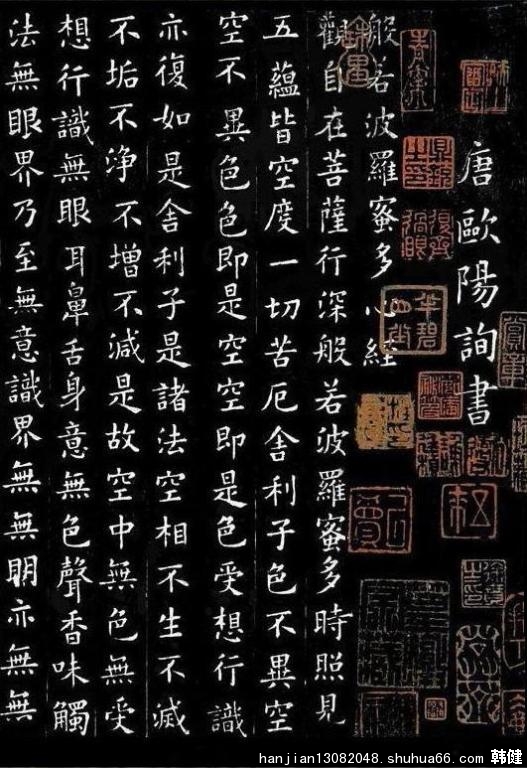 唐歐陽詢書
般若波羅蜜多心經
觀自在菩薩行深般若波羅蜜多時照見
五蘊皆空度一切苦厄舍利子色不異空
空不異色色即是空空即是色受想行識
亦復如是舍利子是諸法空相不生不滅
不垢不淨不增不減是故空中無色無受
想行識無眼耳鼻舌身意無色聲香味觸
法無眼界乃至無意識界無無明亦無無
hanjian13082048.shuhua66.com 韩健